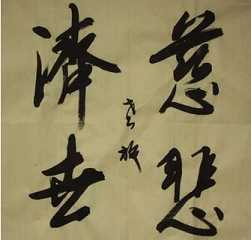 慈悲
濟世